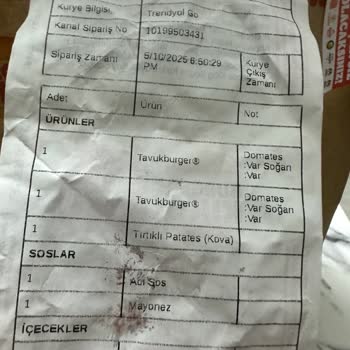 Kurye Bilgisi Trendyol Go
Kanal Sipariş No 10199503431
Sipariş Zamanı 5/10/2025 8:50:29 PM Kurye Çıkış Zamanı
Adet Ürün Not
ÜRÜNLER
1 Tavukburger® Domates :Var Soğan :Var
1 Tavukburger® Domates :Var Soğan :Var
1 Tırtıklı Patates (Kova)
SOSLAR
1 Acı Sos
1 Mayonez
İÇECEKLER
OLACAKSINIZ!